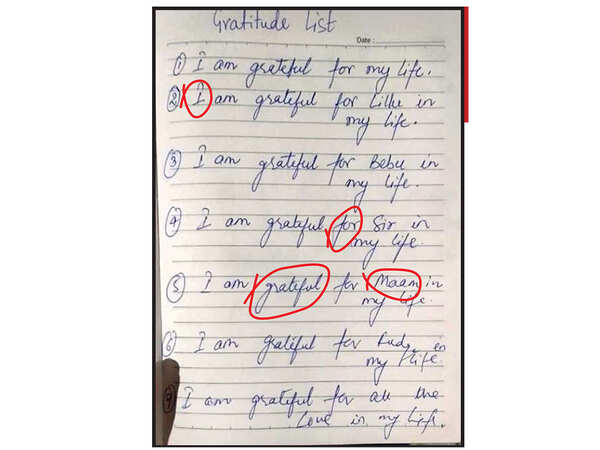 Gratitude List
Date :
1) I am grateful for my life.
2) I am grateful for Lille in
my life.
3) I am grateful for Bebu in
my life.
4) I am grateful for Sir in
my life.
5) I am grateful for Maam in
my life.
6) I am grateful for in
my life.
7) I am grateful for all the
Love in my life.